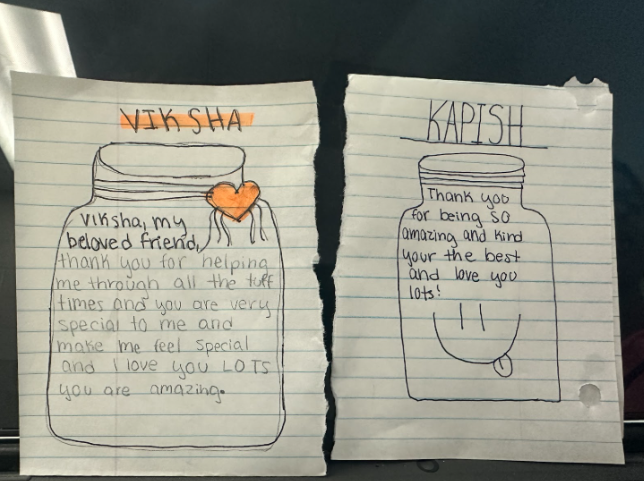 VIKSHA
viksha, my
beloved friend,
thank you for helping
me through all the tuff
times and you are very
special to me and
make me feel special
and I love you LOTS
you are amazing.
KAPISH
Thank you
for being so
amazing and kind
your the best
and love you
lots!